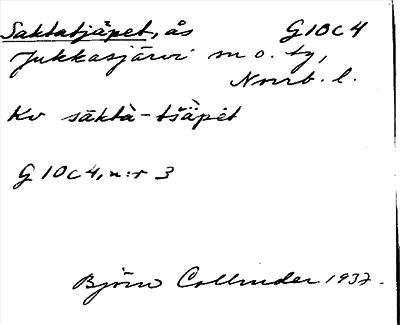 Saktatjåpet, ås G10c4
Jukkasjärvi sn o. tg,
Norrb. l.
Kv säktà-tšäpėt
G 10 c 4, n:r 3
Björn Collinder 1932.